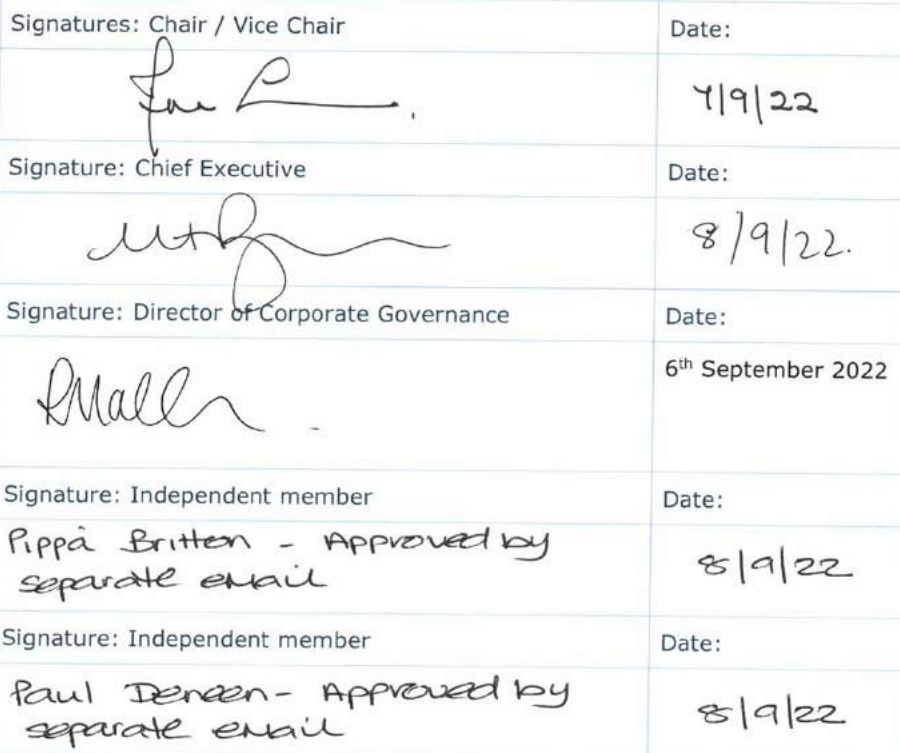 Signatures: Chair / Vice Chair
Date:
7/9/22
Signature: Chief Executive
Date:
8/9/22.
Signature: Director of Corporate Governance
Date:
6th September 2022
Signature: Independent member
Date:
Pippa Britton - Approved by
separate email
8/9/22
Signature: Independent member
Date:
Paul Deneen - Approved by
separate email
8/9/22